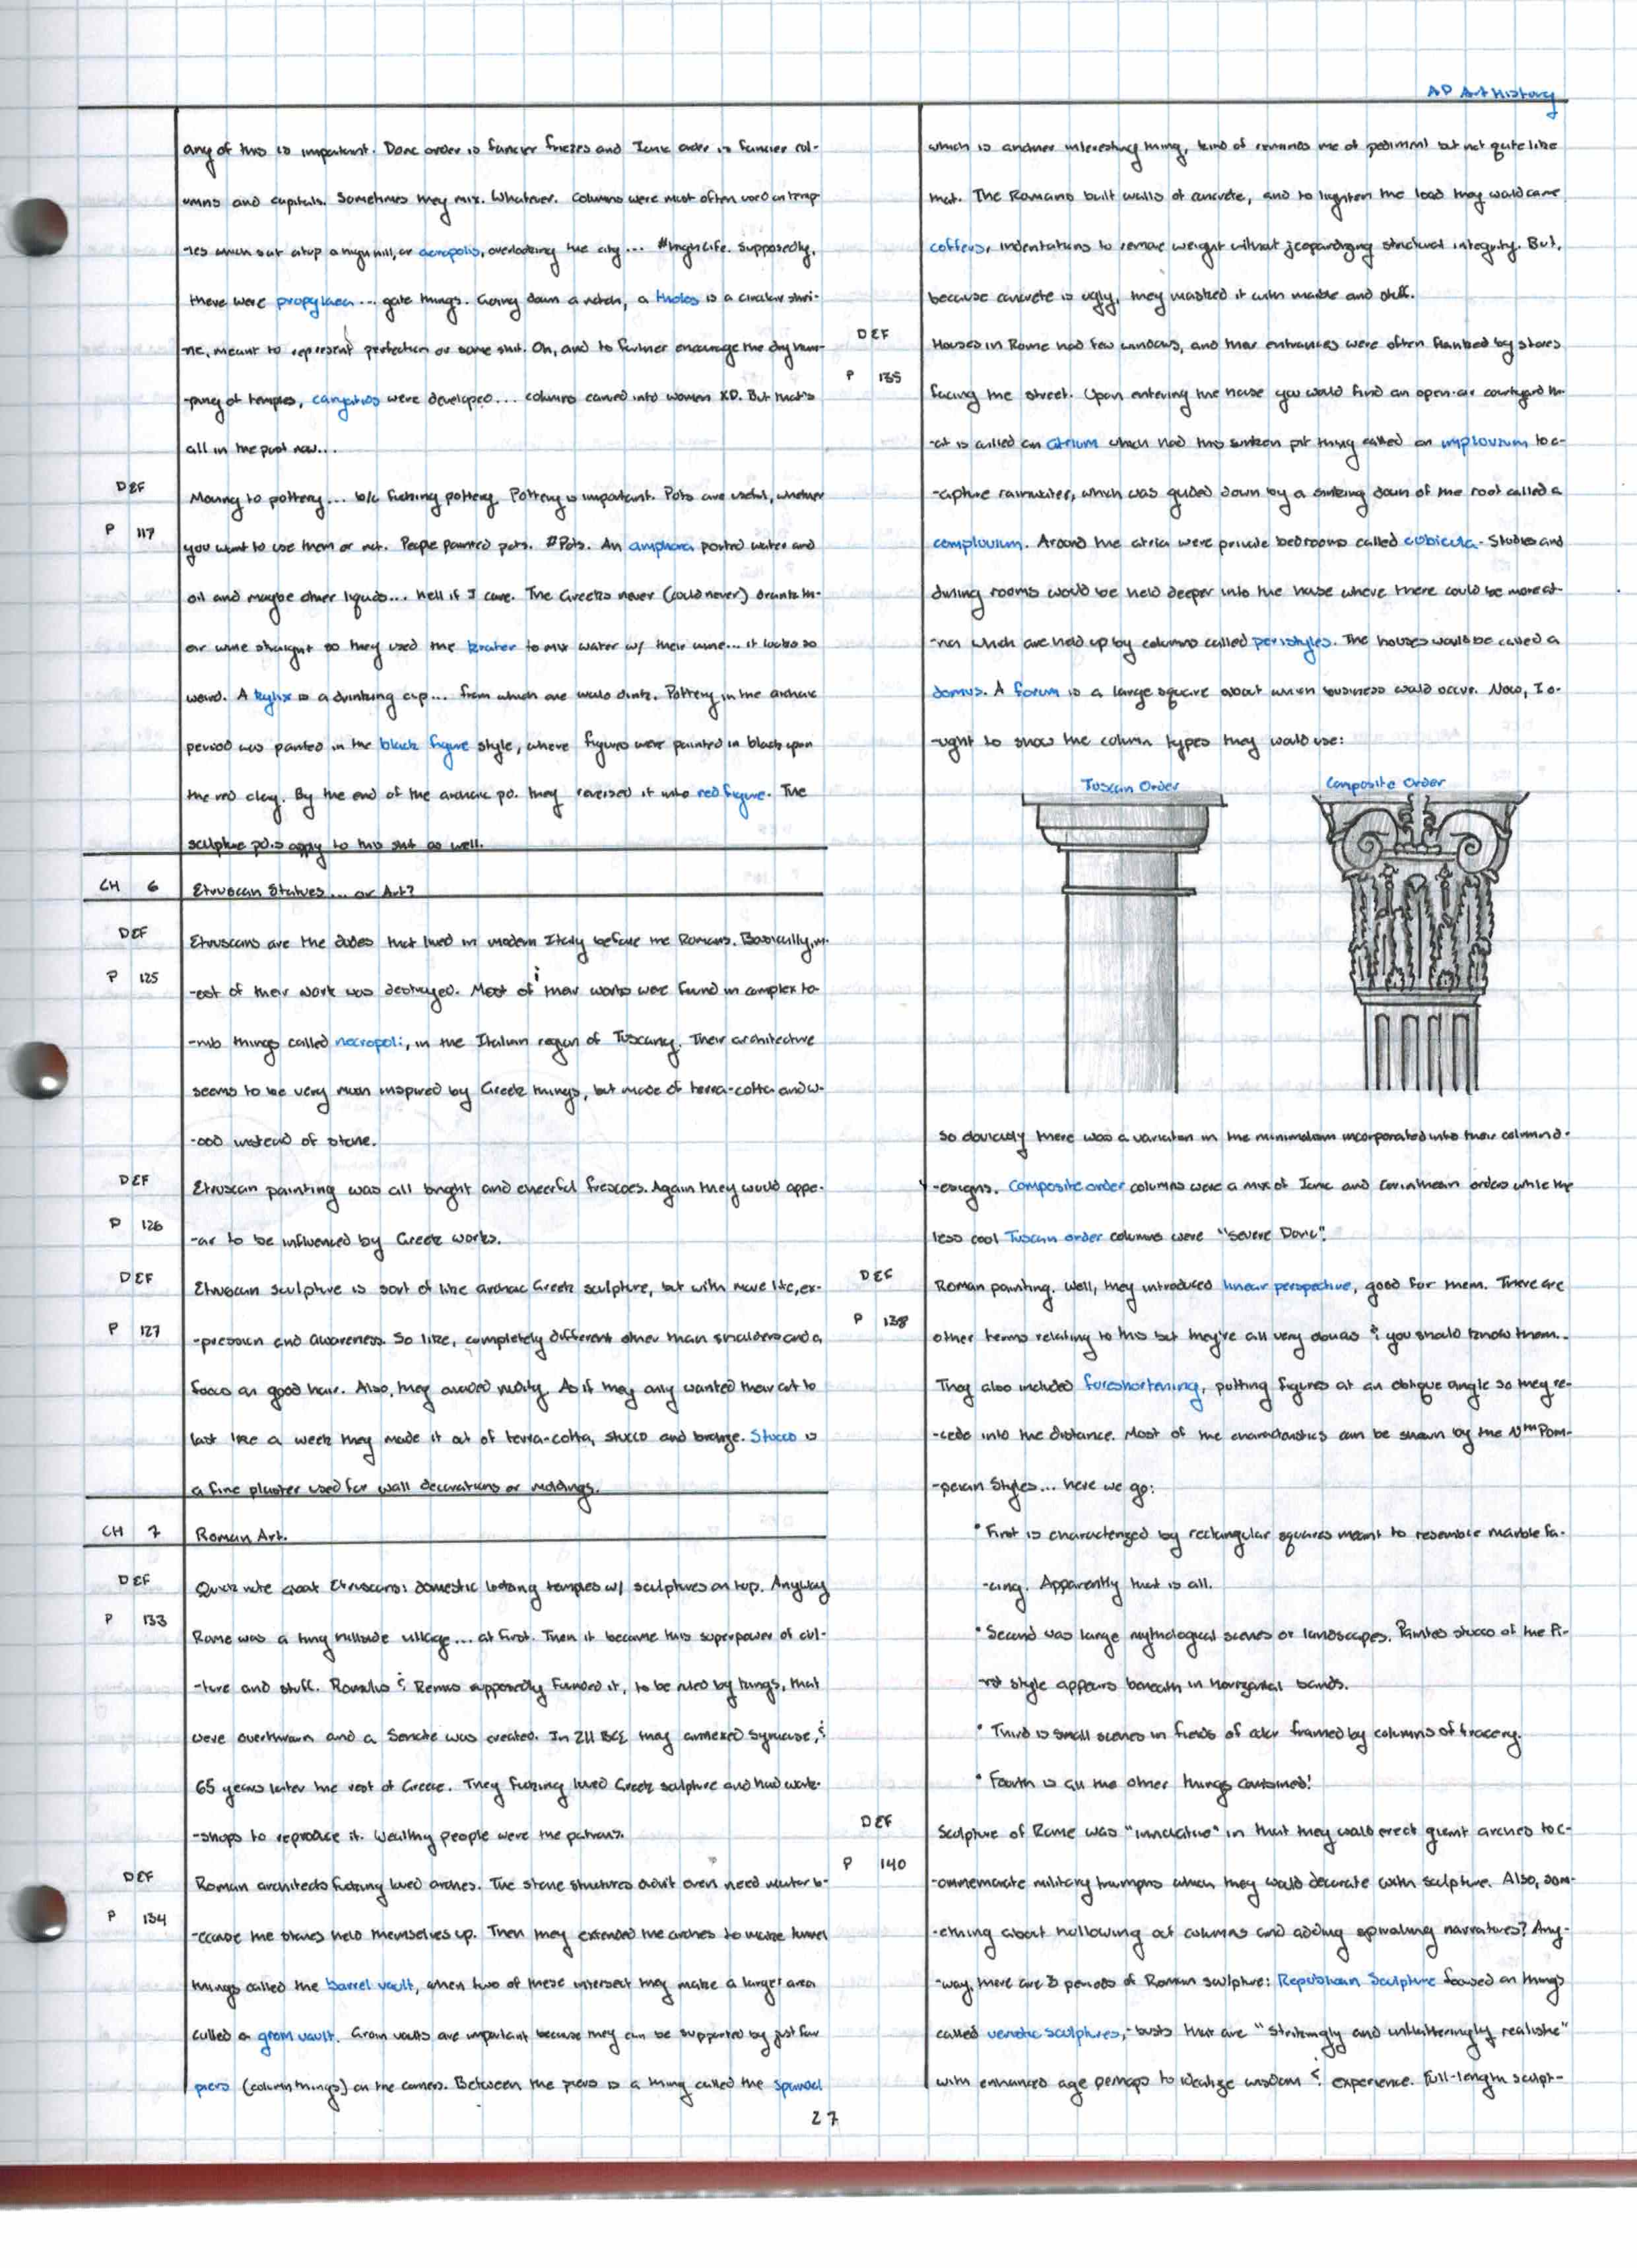 AP Art History
any of this is important. Doric order is fancier friezes and Ionic order is fancier col-
umns and capitals. Sometimes they mix. Whatever. Columns were most often used on temp
-les which sat atop a high hill, or acropolis, overlooking the city... #highlife. Supposedly,
there were propylaea... gate things. Going down a notch, a tholos is a circular shri-
-ne, meant to represent perfection or some shit. Oh, and to further encourage the
-pany of temples, caryatids were developed... columns carved into women XD. But that's
all in the past now...
DEF
P 117
Moving to pottery... b/c fucking pottery. Pottery is important. Pots are useful, whether
you want to use them or not. People painted pots. #Pots. An amphora ported water and
oil and maybe other liquids... hell if I care. The Greeks never (could never) drank th-
eir wine straight so they used the krater to mix water w/ their wine... it looks so
weird. A kylix is a drinking cup... from which one would drink. Pottery in the archaic
period was painted in the black figure style, where figures were painted in black upon
the red clay. By the end of the archaic pd. they reversed it into red figure. The
sculpture pd.s apply to this shit as well.
CH 6 Etruscan Statues... or Art?
DEF
P 125
Etruscans are the dudes that lived in modern Italy before the Romans. Basically, m-
-ost of their work was destroyed. Most of their works were found in complex to-
-mb things called necropoli, in the Italian region of Tuscany. Their architecture
seems to be very much inspired by Greek things, but made of terra-cotta and w-
-ood instead of stone.
DEF
P 126
Etruscan painting was all bright and cheerful frescoes. Again they would appe-
-ar to be influenced by Greek works.
DEF
P 127
Etruscan sculpture is sort of like archaic Greek sculpture, but with more life, ex-
-pression and awareness. So like, completely different other than shoulders and a
focus on good hair. Also, they avoided nudity. As if they only wanted their art to
last like a week they made it out of terra-cotta, stucco and bronze. Stucco is
a fine plaster used for wall decorations or moldings.
CH 7 Roman Art.
DEF
P 133
Quick note about Etruscans: domestic looking temples w/ sculptures on top. Anyway
Rome was a tiny hillside village... at first. Then it became this superpower of cul-
-ture and stuff. Romulus & Remus supposedly founded it, to be ruled by kings, that
were overthrown and a Senate was created. In 211 BCE they annexed Syracuse, &
65 years later the rest of Greece. They fucking loved Greek sculpture and had work-
-shops to reproduce it. Wealthy people were the patrons.
DEF
P 134
Roman architects fucking loved arches. The stone structures didn't even need mortar b-
-ecause the stones held themselves up. Then they extended the arches to make tunnel
things called the barrel vault, when two of these intersect they make a larger area
called a groin vault. Groin vaults are important because they can be supported by just four
piers (column things) on the corners. Between the piers is a thing called the spandrel
which is another interesting thing, kind of reminds me of pediment but not quite like
that. The Romans built walls of concrete, and to lighten the load they would carve
coffers, indentations to remove weight without jeopardizing structural integrity. But,
because concrete is ugly, they masked it with marble and stuff.
DEF
P 135
Houses in Rome had few windows, and their entrances were often flanked by stores
facing the street. Upon entering the house you would find an open-air courtyard th-
-at is called an atrium which had this sunken pit thing called an impluvium to c-
-apture rainwater, which was guided down by a sinking down of the roof called a
compluvium. Around the atria were private bedrooms called cubicula. Studies and
dining rooms would be held deeper into the house where there could be more at-
-ria which are held up by columns called peristyles. The houses would be called a
domus. A forum is a large square about which business would occur. Now, I o-
-ught to show the column types they would use:
Tuscan Order
Composite Order
so obviously there was a variation in the minimalism incorporated into their column d-
-esigns. Composite order columns were a mix of Ionic and Corinthian orders while the
less cool Tuscan order columns were "severe Doric".
DEF
P 138
Roman painting. Well, they introduced linear perspective, good for them. There are
other terms relating to this but they're all very obvious & you should know them.
They also included foreshortening, putting figures at an oblique angle so they re-
-cede into the distance. Most of the characteristics can be shown by the Nth Pom-
-peian Styles... here we go:
• First is characterized by rectangular squares meant to resemble marble fa-
-cing. Apparently that is all.
• Second was large mythological scenes or landscapes. Painted stucco of the Fi-
-rst style appears beneath in horizontal bands.
• Third is small scenes in fields of color framed by columns of tracery.
• Fourth is all the other things combined!
DEF
P 140
Sculpture of Rome was "innovative" in that they would erect giant arches to c-
-ommemorate military triumphs which they would decorate with sculpture. Also, som-
-ething about hollowing out columns and adding spiraling narratives? Any-
-way, there are 3 periods of Roman sculpture: Republican Sculpture focused on things
called veristic sculptures, - busts that are "strikingly and unflatteringly realistic"
with enhanced age perhaps to idealize wisdom & experience. Full-length sculpt-
27